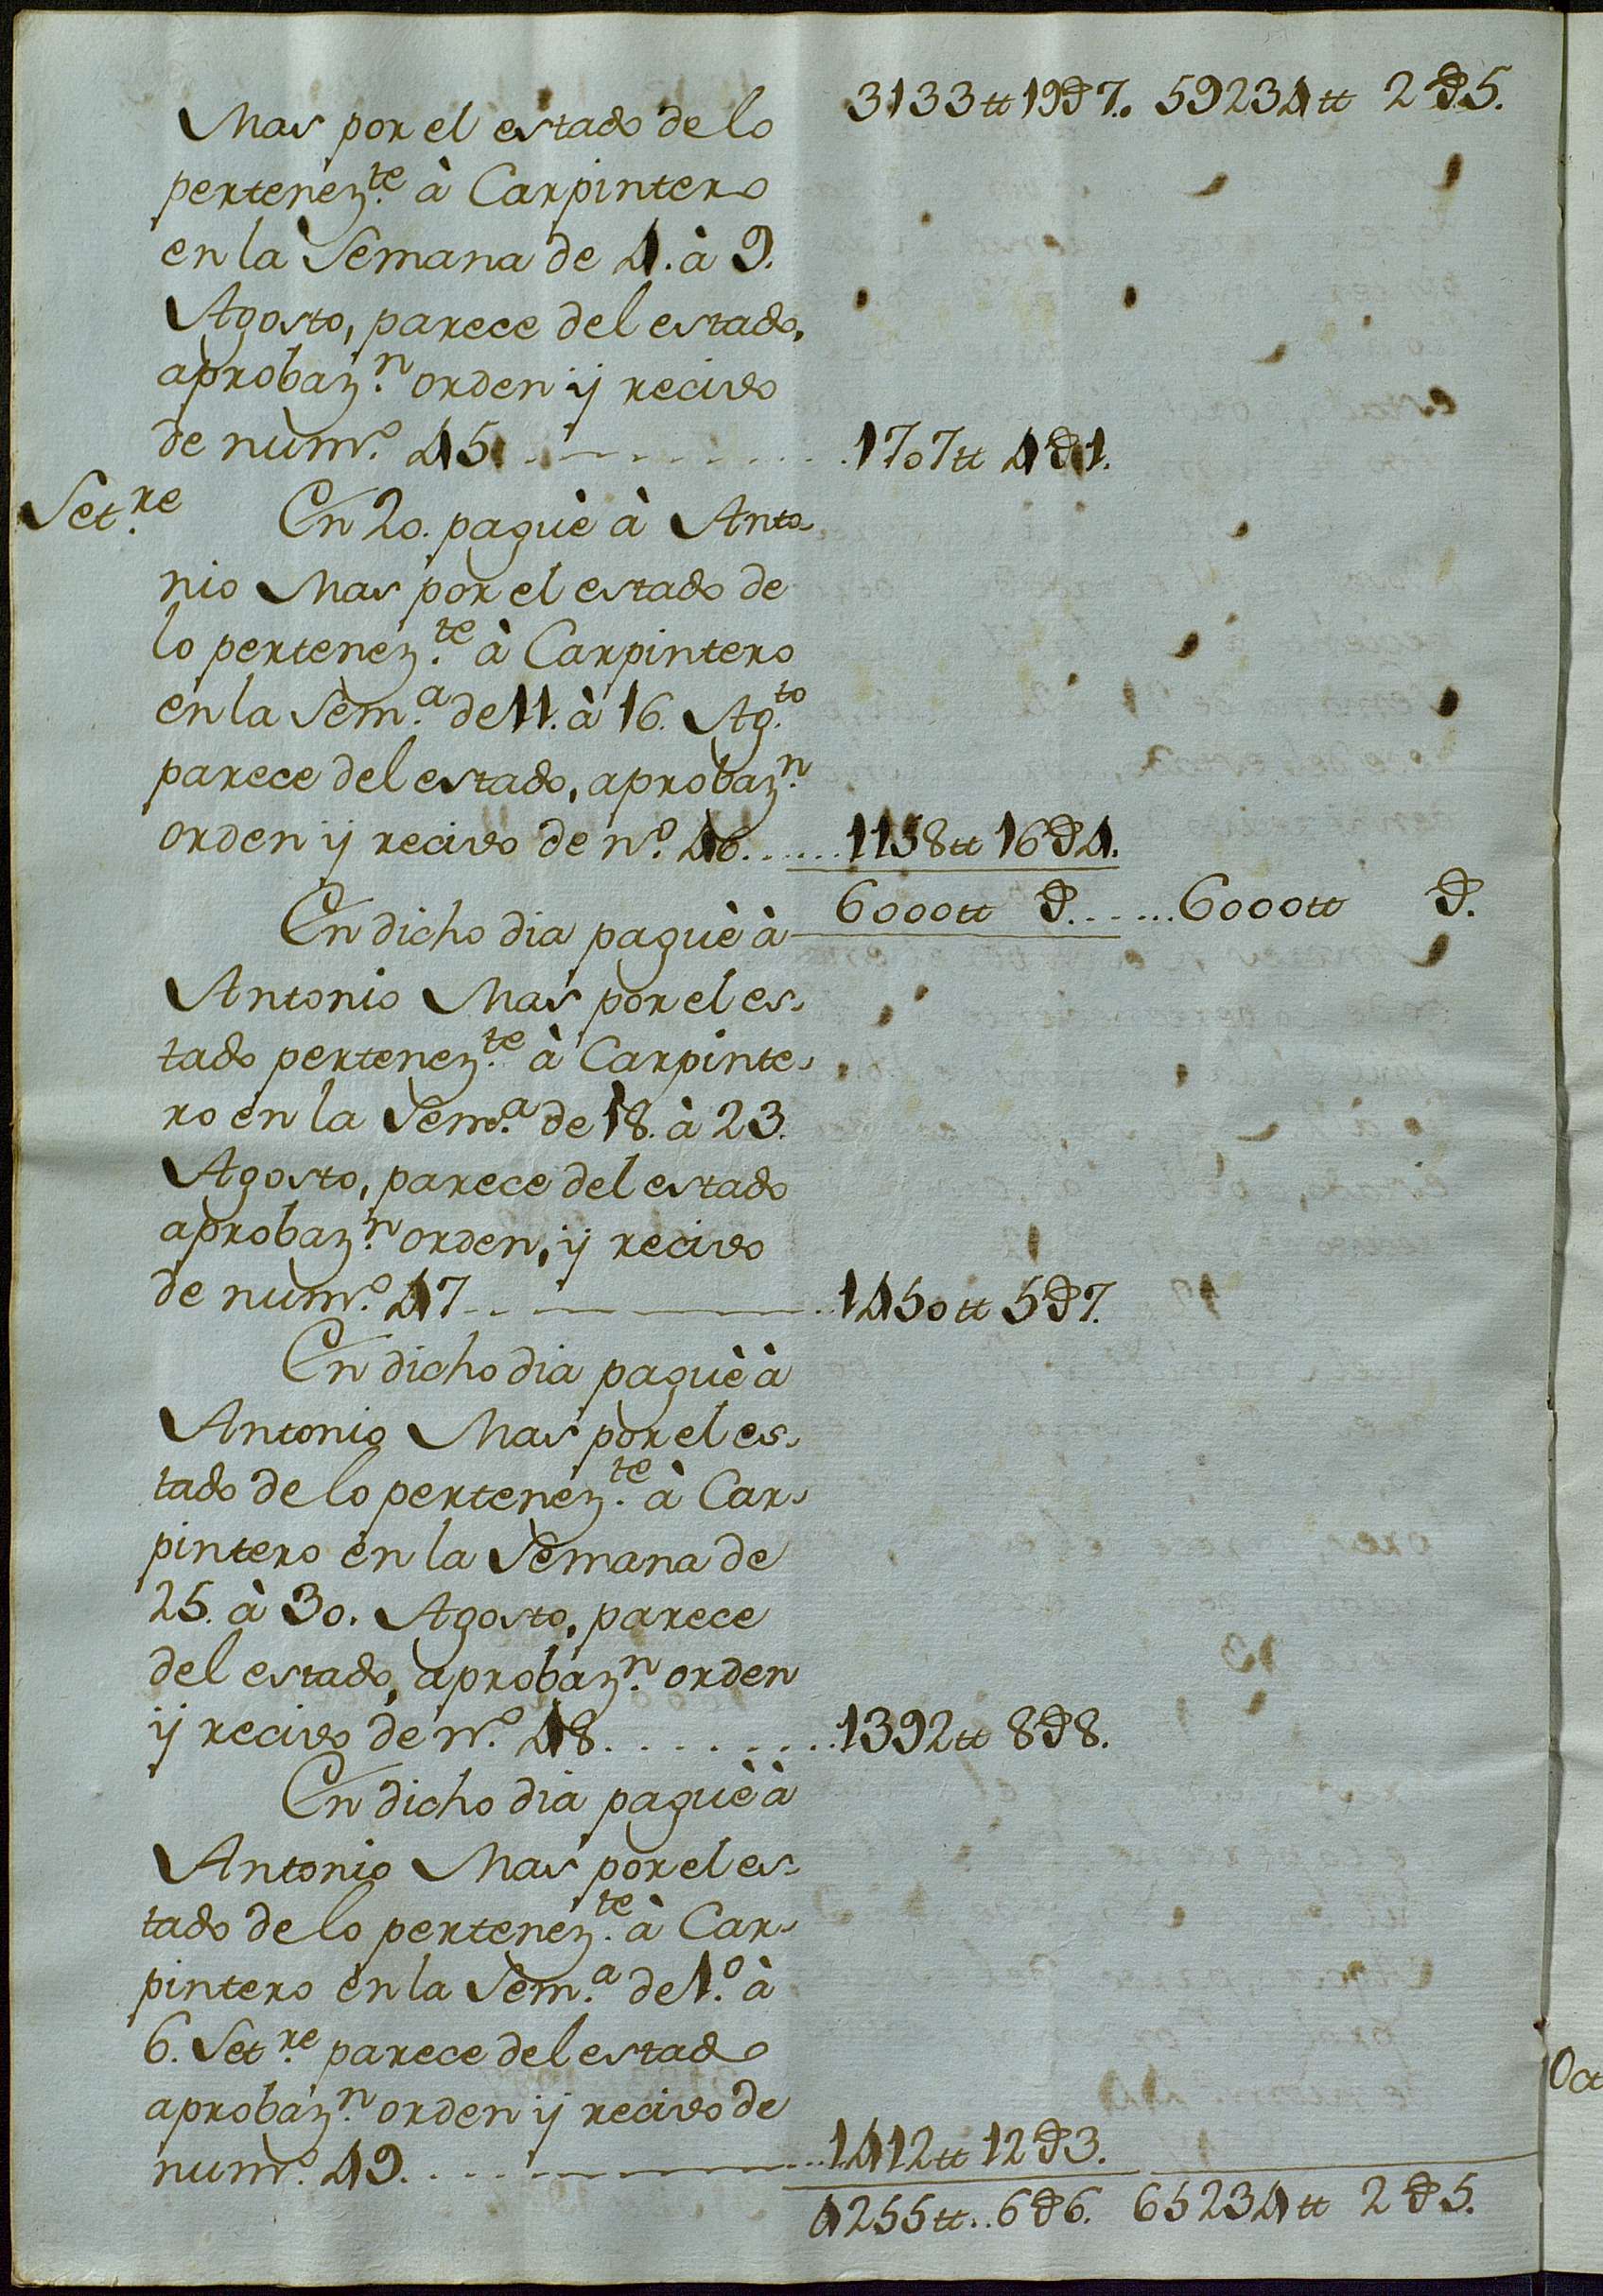 3133tt 19D7. 59234tt 2D5.
Mas por el estado de lo
pertenez.te à Carpintero
en la Semana de 4. à 9.
Agosto, parece del estado,
aprobaz.n orden ij recivo
de num.o 45. 1707tt 4D1.
Set.re En 20. paguè à Anto-
nio Mas por el estado de
lo pertenez.te à Carpintero
en la Sem.a de 11. à 16. Ag.to
parece del estado, aprobaz.n
orden ij recivo de n.o 46...... 1158tt 16D4.
6000tt D. ...... 6000tt D.
En dicho dia paguè à
Antonio Mas por el es-
tado pertenez.te à Carpinte-
ro en la Sem.a de 18. à 23.
Agosto, parece del estado
aprobaz.n orden, ij recivo
de num.o 47 1450tt 5D7.
En dicho dia paguè à
Antonio Mas por el es-
tado de lo pertenez.te à Car-
pintero en la Semana de
25. à 30. Agosto, parece
del estado, aprobaz.n orden
ij recivo de n.o 48. ........ 1392tt 8D8.
En dicho dia paguè à
Antonio Mas por el es-
tado de lo pertenez.te à Car-
pintero en la Sem.a de 1.o à
6. Set.re parece del estado
aprobaz.n orden ij recivo de
num.o 49. ..... 1412tt 12D3.
4255tt.. 6D6. 65234tt 2D5.
Oct